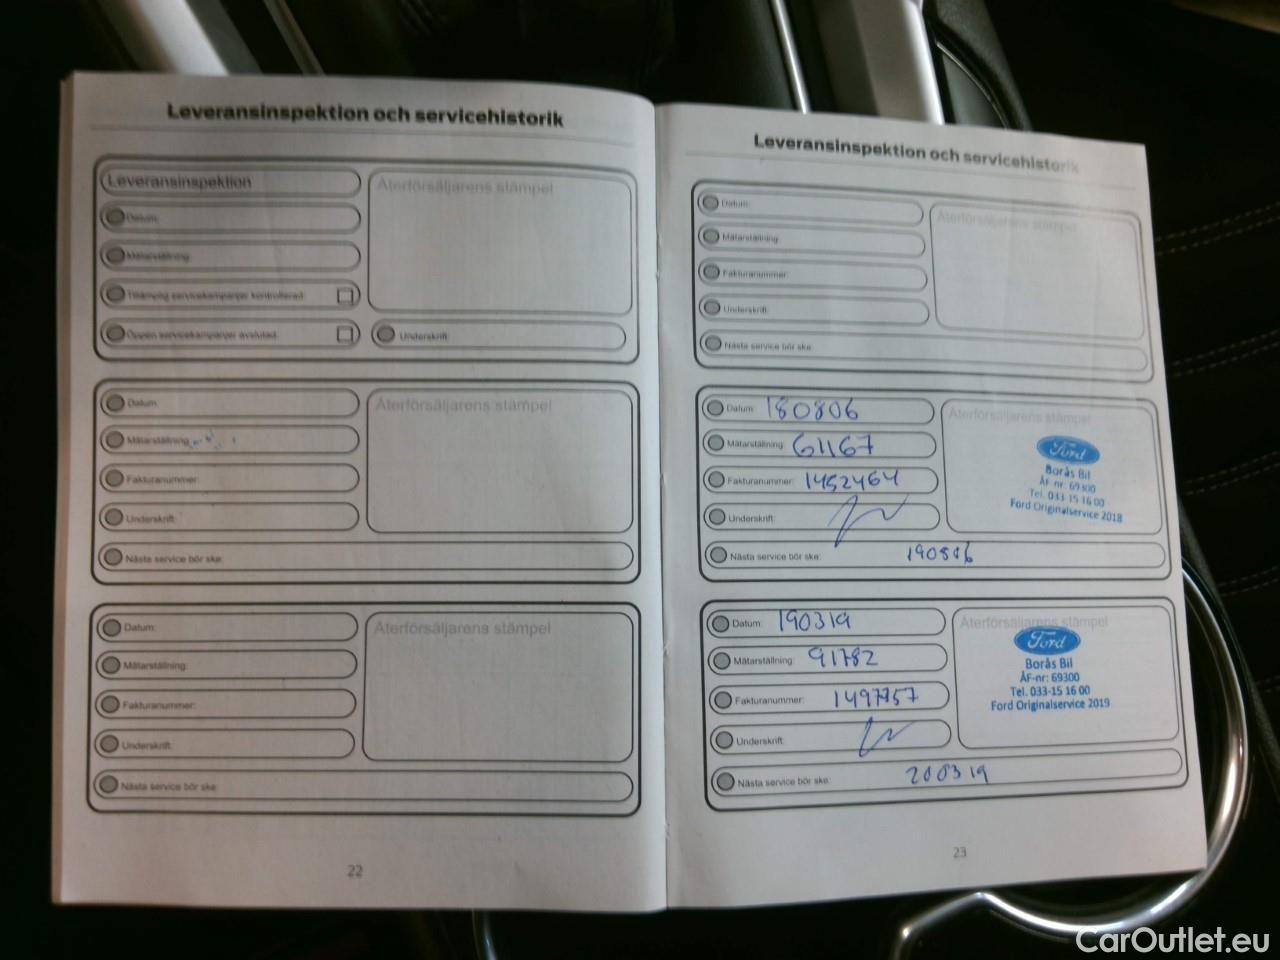 Leveransinspektion och servicehistorik
Leveransinspektion
Återförsäljarens stämpel
Datum:
Mätarställning:
Tillämplig servicekampanjer kontrollerad:
Öppen servicekampanjer avslutad:
Underskrift:
Datum:
Återförsäljarens stämpel
Mätarställning:
Fakturanummer:
Underskrift:
Nästa service bör ske:
Datum:
Återförsäljarens stämpel
Mätarställning:
Fakturanummer:
Underskrift:
Nästa service bör ske:
22
Leveransinspektion och servicehistorik
Datum:
Återförsäljarens stämpel
Mätarställning:
Fakturanummer:
Underskrift:
Nästa service bör ske:
Datum: 180806
Återförsäljarens stämpel
Mätarställning: 61167
Fakturanummer: 1452464
Underskrift:
Ford
Borås Bil
ÅF-nr: 69300
Tel. 033-15 16 00
Ford Originalservice 2018
Nästa service bör ske: 190806
Datum: 190319
Återförsäljarens stämpel
Mätarställning: 91782
Fakturanummer: 1497757
Underskrift:
Ford
Borås Bil
ÅF-nr: 69300
Tel. 033-15 16 00
Ford Originalservice 2019
Nästa service bör ske: 200319
23
CarOutlet.eu